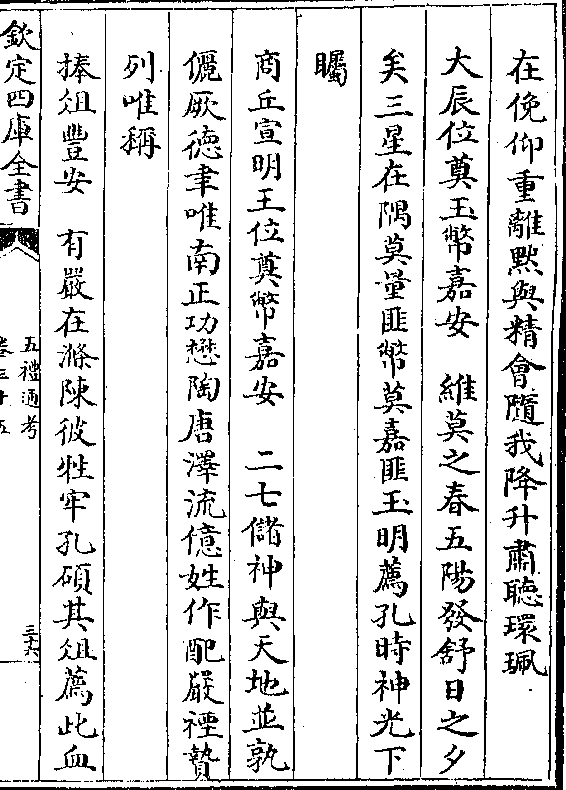 在俛仰重離黙與精會隨我降升肅聽環珮
大辰位奠玉幣嘉安　維莫之春五陽發舒日之夕
矣三星在隅莫量匪幣莫嘉匪玉明薦孔時神光下
矚
商丘宣明王位奠幣嘉安　二七儲神與天地並孰
儷厥德聿唯南正功懋陶唐澤流億姓作配嚴禋贊
列唯稱
捧俎豐安　有嚴在滌陳彼牲牢孔碩其俎薦此血
欽定四庫全書
五禮通考
卷三十五
三六